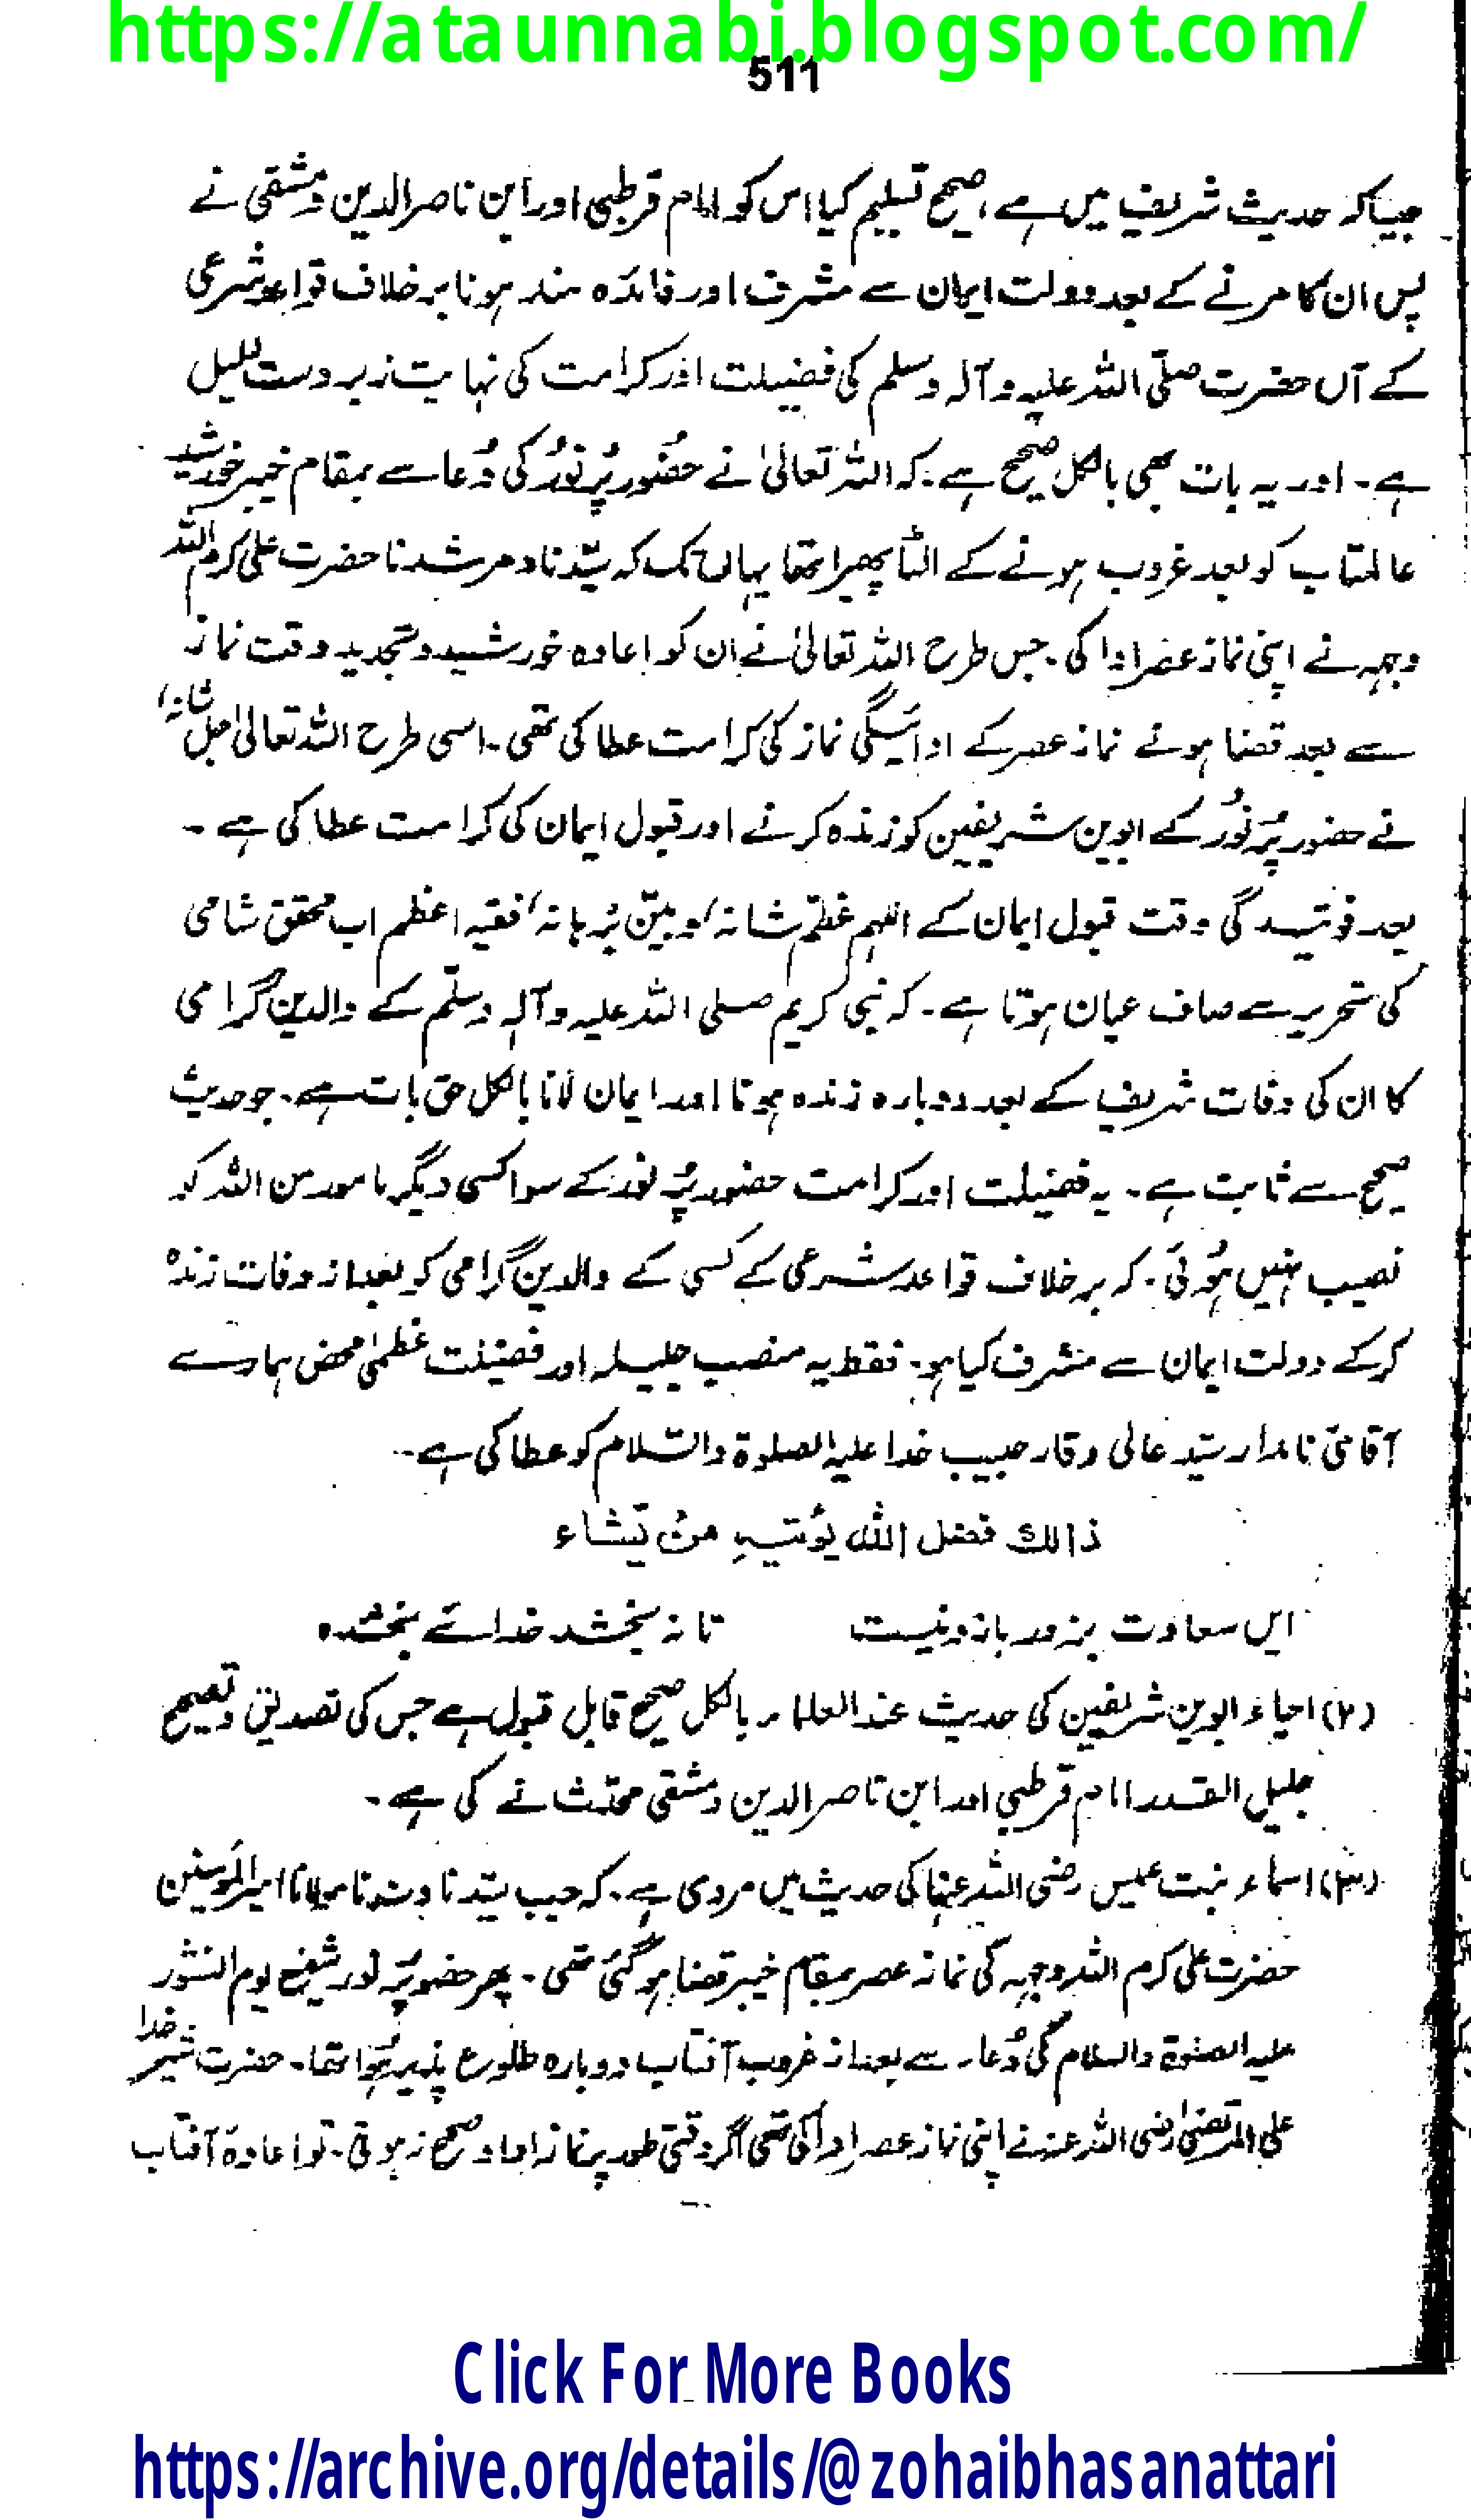 https://ataunnabi.blogspot.com/
511
جیساکہ حدیث شریف میں ہے، صحیح تسلیم کیا اس کو امام قرطبی اور ابن ناصر الدین دمشقی نے
پس ان کا مرنے کے بعد دولت ایمان سے مشرف اور فائدہ مند ہونا بر خلاف قواعد شرعی
کے آں حضرت صلّی اللہ علیہ وآلہ وسلم کی فضیلت اور کرامت کی نہایت زبردست دلیل
ہے۔ اور یہ بات بھی بالکل صحیح ہے۔ کہ اللہ تعالیٰ نے حضُور پُر نُورُ کی دُعا سے بمقام خیبر خورشید
عالمتاب کو بعد غروب ہونے کے الٹا پھیرا تھا یہاں تک کہ سیّدنا و مرشدنا حضرت علی کرم اللہ
وجہہ نے اپنی نماز عصر ادا کی۔ جس طرح اللہ تعالیٰ نے ان کو اعادہ خورشید و تجدید وقت نماز
سے بعد قضا ہوئے نماز عصر کے ادائیگی نماز کی کرامت عطا کی تھی۔ اسی طرح اللہ تعالیٰ جل شانہٗ
نے حضور پُر نُورُ کے ابوین شریفین کو زندہ کرنے اور قبول ایمان کی کرامت عطا کی ہے۔
بعد فوتیدگی وقت قبول ایمان کے اللہم عظّم شانہ، وبیّن بُرہانہ، فقیہ اعظم اب محقق شامی
کی تحریر سے صاف عیان ہوتا ہے۔ کہ نبی کریم صلی اللہ علیہ وآلہ وسلّم کے والدین گرامی
کا ان کی وفات شریف کے بعد دوبارہ زندہ ہونا اور ایمان لانا بالکل حق بات ہے۔ جو حدیث
صحیح سے ثابت ہے۔ یہ فضیلت اور کرامت حضور پُر نور کے سوا کسی دیگر مامور من اللہ کو
نصیب نہیں ہُوئی۔ کہ بر خلاف قواعد شرعی کے کسی کے والدین گرامی کو بعد از وفات زندہ
کرکے دولت ایمان سے مشرف کیا ہو۔ فقط یہ منصب جلیلہ اور فضیلت عظمیٰ محض ہمارے
آقا مئ نامدار سیّد عالی وقار حبیب خدا علیہ الصلوۃ والسّلام کو عطا کی ہے۔
ذالك فضل اللہ یوُتیہِ منُ یَّشاء
ایں سعادت بزور بازو نیست تا نہ بخشد خدائے بخشندہ
(۲) احیاء ابوین شریفین کی حدیث عند العلماء بالکل صحیح قابل قبول ہے جس کی تصدیق و تصیح
جلیل القدر امام قرطبی اور ابن ناصر الدین دمشقی محدّث نے کی ہے۔
(۳) اسماء بنت عمیس رضی اللہ عنہا کی حدیث میں مروی ہے۔ کہ جب سیّدنا و سندنا مولانا امیر المؤمنین
حضرت علی کرم اللہ وجہہ کی نماز عصر بمقام خیبر قضا ہو گئی تھی۔ پھر حضور پُر نور شفیع یوم النشور
علیہ الصلوۃ والسلام کی دُعاء سے بعد از غروب آفتاب دوبارہ طلوع پذیر ہُوا تھا۔ حضرت شیر خدا
علی المرتضیٰ رضی اللہ عنہ نے اپنی نماز عصر ادا کی تھی اگر وقتی طور پر نماز ادا و صحیح نہ ہوتی۔ تو اعادۂ آفتاب
Click For More Books
https://archive.org/details/@zohaibhasanattari